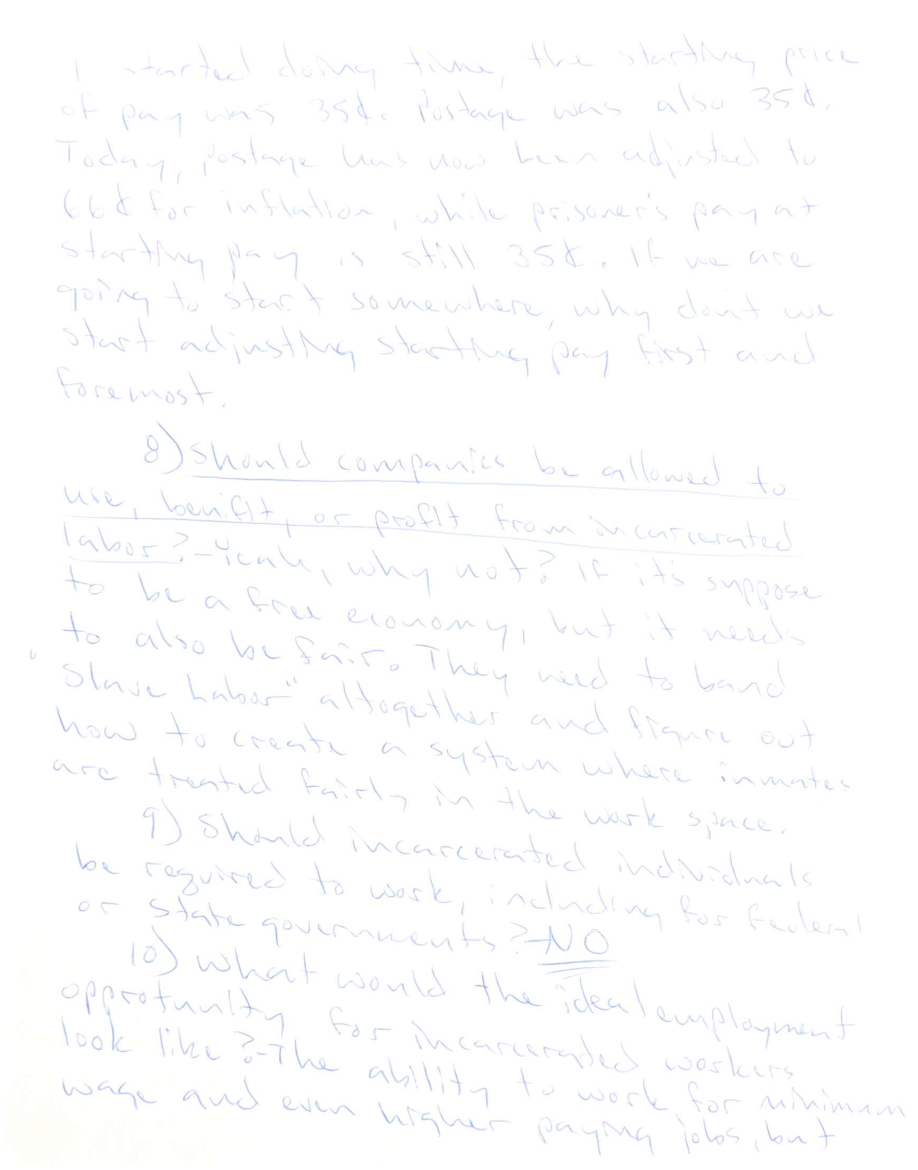 I started doing time, the starting price
of pay was 35¢. Postage was also 35¢.
Today, postage has now been adjusted to
66¢ for inflation, while prisoner's pay at
starting pay is still 35¢. If we are
going to start somewhere, why don't we
start adjusting starting pay first and
foremost.
8) Should companies be allowed to
use, benifit, or profit from incarcerated
labor? - Yeah, why not? If it's suppose
to be a free economy, but it needs
to also be fair. They need to band
"Slave Labor" altogether and figure out
how to create a system where inmates
are treated fairly in the work space.
9) Should incarcerated individuals
be required to work, including for federal
or state governments? - NO
10) What would the ideal employment
opprotunity for incarcerated workers
look like? - The ability to work for minimum
wage and even higher paying jobs, but